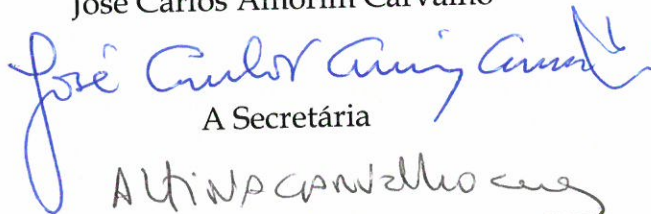 José Carlos Amorim Carvalho
José Carlos Amorim Carvalho
A Secretária
Altina Carvalho